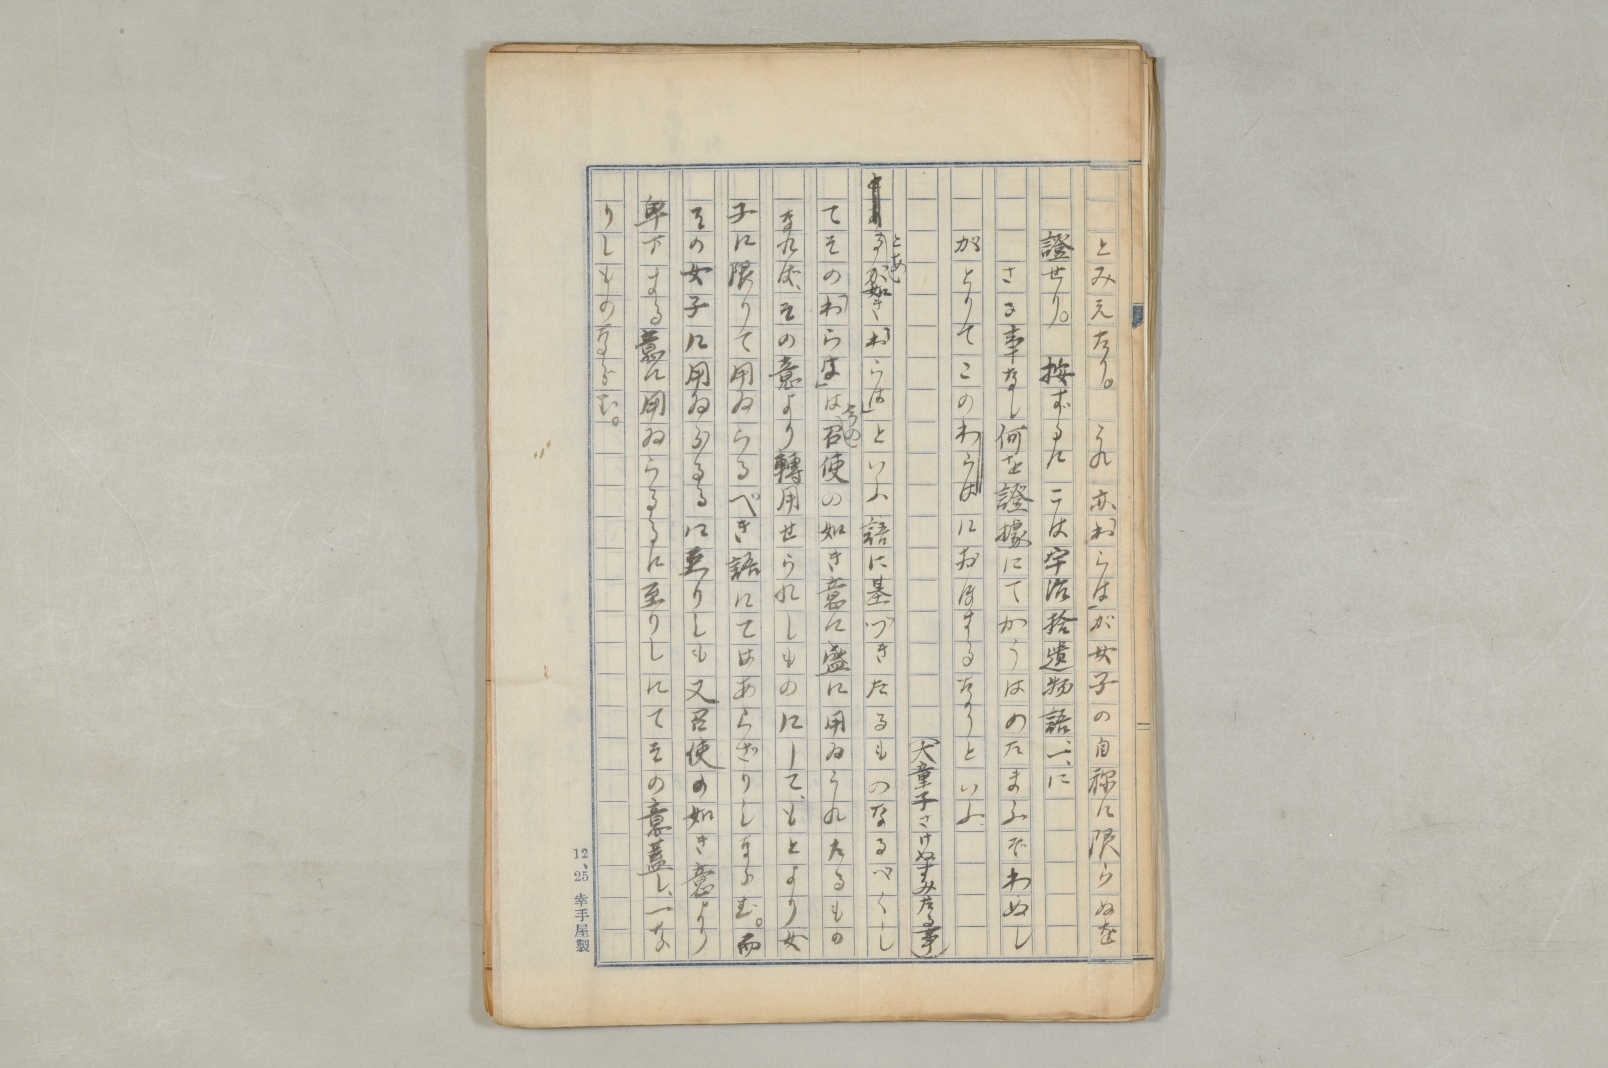 とみえたり。これ亦「わらは」が女子の自称に限らぬを
證せり。按ずるに こは宇治拾遺物語、一、に
さる事なし何を證據にてかうはのたまふぞわぬし
がとりてこのわらはにおほするなりといふ
(大童子さけぬすみたる事)
とあるが如き「わらは」といふ語に基づきたるものなるべくし
てその「わらは」は、召使の如き意に盛に用ゐられたるもの
なれば、その意より轉用せられしものにして、もとより女
子に限りて用ゐらるべき語にてはあらざりしならむ。而
その女子に用ゐらるるに至りしも又召使の如き意より
卑下する意に用ゐらるるに至りしにてその意蓋し、一な
りしものならむ。
12、25 幸手屋製